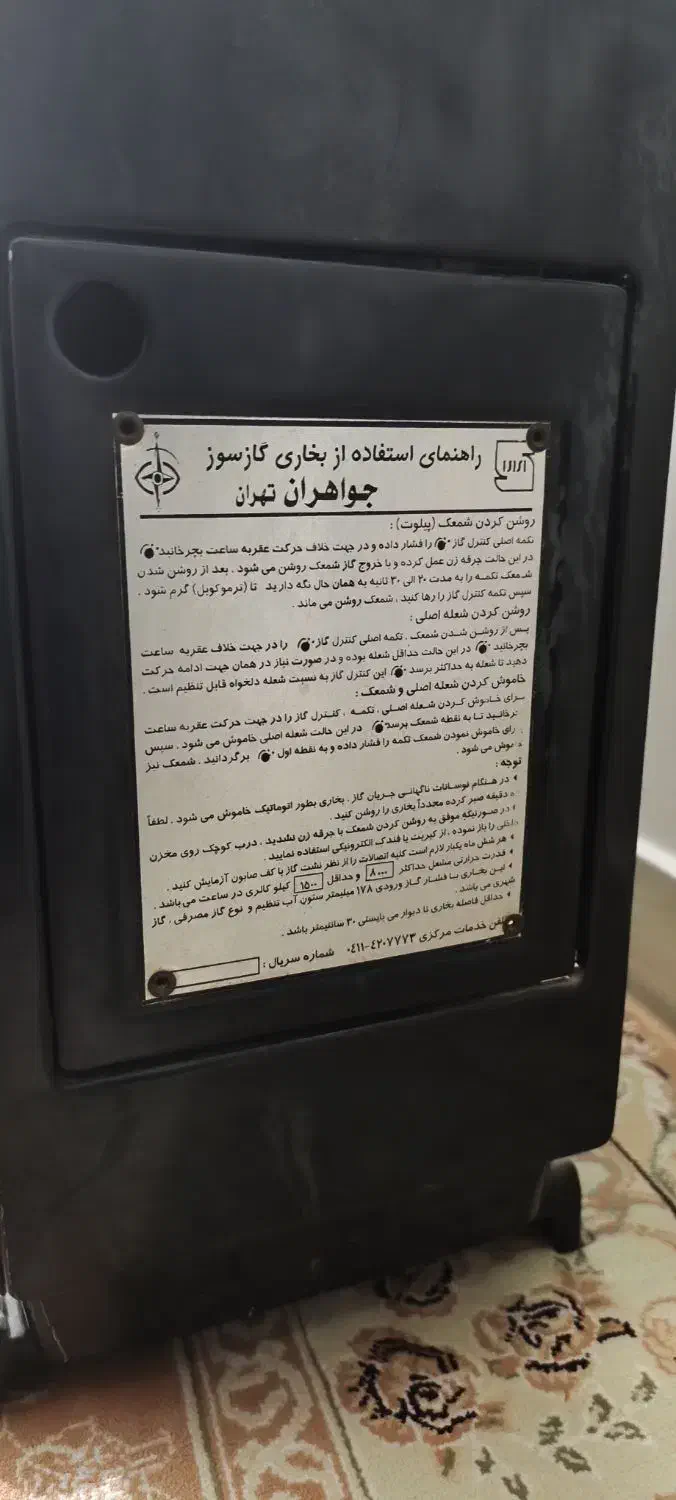 راهنمای استفاده از بخاری گازسوز
جواهران تهران
روشن کردن شمعک (پیلوت) :
تکمه اصلی کنترل گاز را فشار داده و در جهت خلاف حرکت عقربه ساعت بچرخانید
در این حالت جرقه زن عمل کرده و با خروج گاز شمعک روشن می شود . بعد از روشن شدن
شمعک تکمه را به مدت ۲۰ الی ۳۰ ثانیه به همان حال نگه دارید تا (ترموکوپل) گرم شود .
سپس تکمه کنترل گاز را رها کنید ، شمعک روشن می ماند .
روشن کردن شعله اصلی :
پس از روشن شدن شمعک . تکمه اصلی کنترل گاز را در جهت خلاف عقربه ساعت
بچرخانید در این حالت حداقل شعله بوده و در صورت نیاز در همان جهت ادامه حرکت
دهید تا شعله به حداکثر برسد این کنترل گاز به نسبت شعله دلخواه قابل تنظیم است .
خاموش کردن شعله اصلی و شمعک :
برای خاموش کردن شعله اصلی ، تکمه ، کنترل گاز را در جهت حرکت عقربه ساعت
بچرخانید تا به نقطه شمعک برسد در این حالت شعله اصلی خاموش می شود . سپس
برای خاموش نمودن شمعک تکمه را فشار داده و به نقطه اول برگردانید . شمعک نیز
خاموش می شود .
توجه :
در هنگام نوسانات ناگهانی جریان گاز . بخاری بطور اتوماتیک خاموش می شود . لطفاً
دقیقه صبر کرده مجدداً بخاری را روشن کنید .
در صورتیکه موفق به روشن کردن شمعک با جرقه زن نشدید ، درب کوچک روی مخزن
داخلی را باز نموده ، از کبریت یا فندک الکترونیکی استفاده نمایید .
هر شش ماه یکبار لازم است کلیه اتصالات را از نظر نشت گاز با کف صابون آزمایش کنید .
قدرت حرارتی مشعل حداکثر ۸۰۰۰ و حداقل ۱۵۰۰ کیلو کالری در ساعت می باشد .
این بخاری با فشار گاز ورودی ۱۷۸ میلیمتر ستون آب تنظیم و نوع گاز مصرفی ، گاز
شهری می باشد .
حداقل فاصله بخاری تا دیوار می بایستی ۳۰ سانتیمتر باشد .
تلفن خدمات مرکزی ۴۲۰۷۷۷۳-۰۴۱۱ شماره سریال :